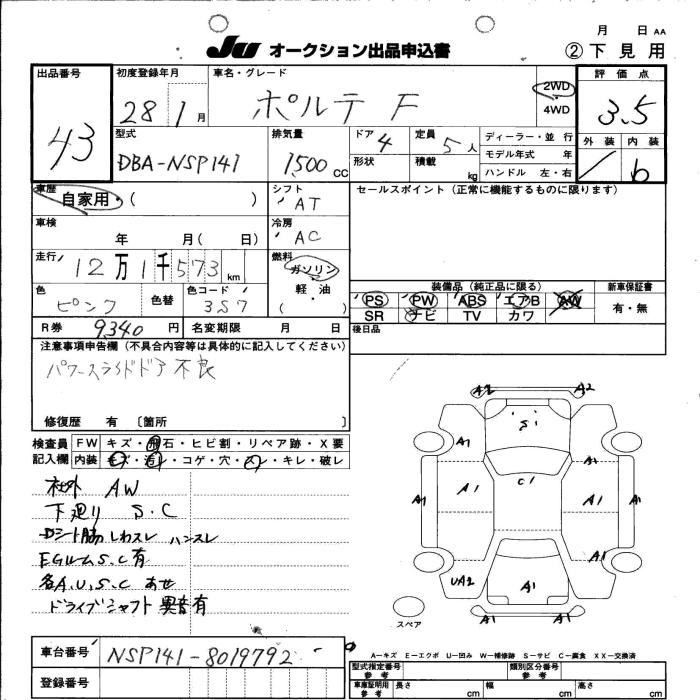 月 日 AA
JU オークション出品申込書 ②下見用
出品番号 初度登録年月 車名・グレード 2WD 評価点
43 28 1月 ポルテ F 4WD 3.5
型式 排気量 ドア 4 定員 5人 ディーラー・並 行 外装 内装
DBA-NSP141 1500cc 形状 積載 kg モデル年式 年 b
ハンドル 左・右
車歴 シフト セールスポイント(正常に機能するものに限ります)
自家用・( ) AT
車検 冷房
年 月( 日) AC
走行 燃料
12万1千573km ガソリン 装備品(純正品に限る) 新車保証書
色 色替 色コード 軽・油 PS PW ABS エアB AW 有・無
ピンク 357 ( ) SR ナビ TV カワ
R券 9340円 名変期限 月 日 後日品
注意事項申告欄(不具合内容等は具体的に記入してください)
パワースライドドア不良
修復歴 有 〔箇所 〕
検査員 FW キズ・飛石・ヒビ割・リペア跡・X要
記入欄 内装 キズ・汚レ・コゲ・穴・スレ・キレ・破レ
社外 AW
下廻り S.C
Dシート脇しわスレ ハンスレ
EGルームS.C有
各A.U.S.C あせ
ドライブシャフト異音有
A2 A2
S1
A1 A1
C1
A1 A1 A1 A1
A1
UA2 A1
A1
スペア
A…キズ E…エクボ U…凹み W…補修跡 S…サビ C…腐食 XX…交換済
車台番号 NSP141-8019792
登録番号
型式指定番号 参考 類別区分番号 参考
車庫証明用 参考 長さ cm 幅 cm 高さ cm